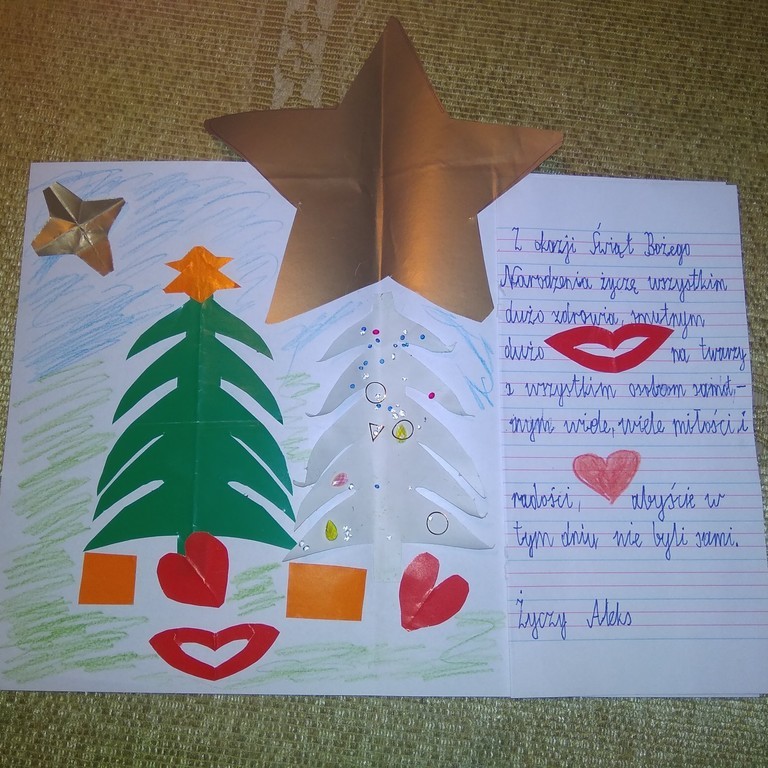 Z okazji Świąt Bożego
Narodzenia życzę wszystkim
dużo zdrowia, smutnym
dużo na twarzy
a wszystkim osobom samot-
nym wiele, wiele miłości i
radości, abyście w
tym dniu nie byli sami.
Życzy Aleks